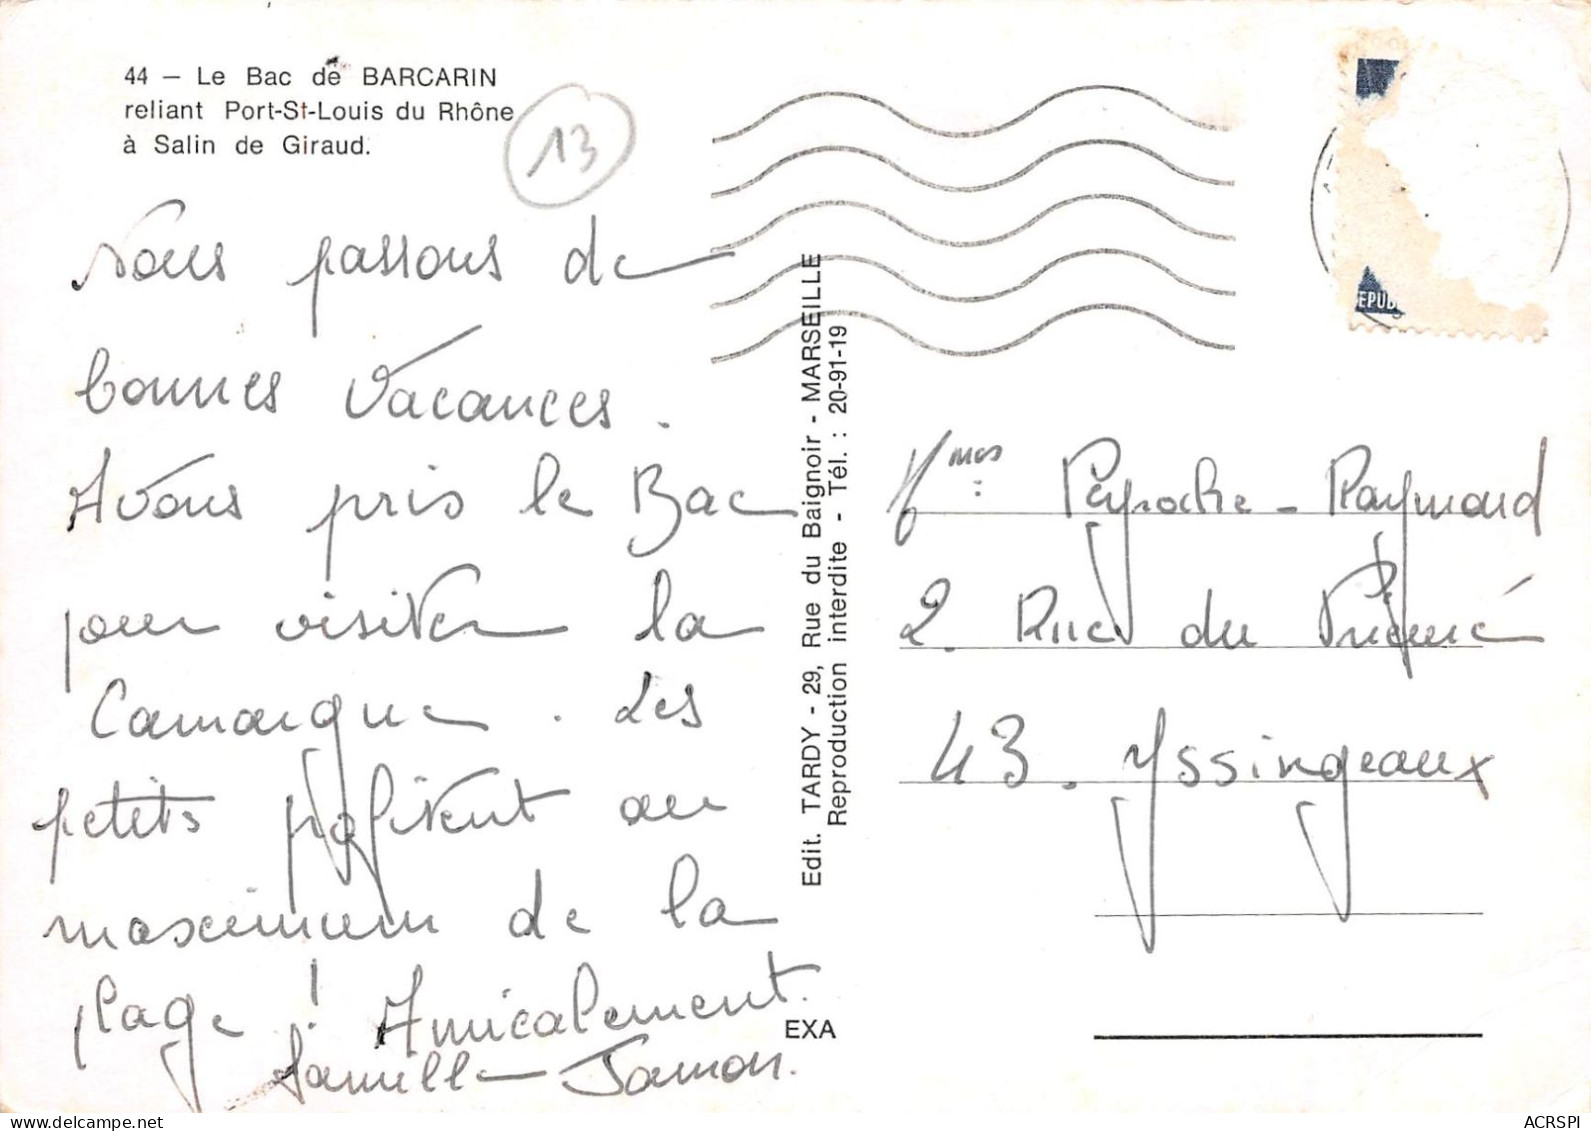 44 — Le Bac de BARCARIN
reliant Port-St-Louis du Rhône
à Salin de Giraud.
13
Nous passons de
bonnes Vacances.
Avons pris le Bac
pour visiter la
Camargue. Les
petits profitent au
maximum de la
plage! Amicalement.
Famille Jamon.
Edit. TARDY - 29, Rue du Baignoir - MARSEILLE
Reproduction interdite - Tél. : 20-91-19
EXA
EPUB
mes : Peyroche - Raymond
2. Rue du Prieuré
43. Yssingeaux
ACRSPI